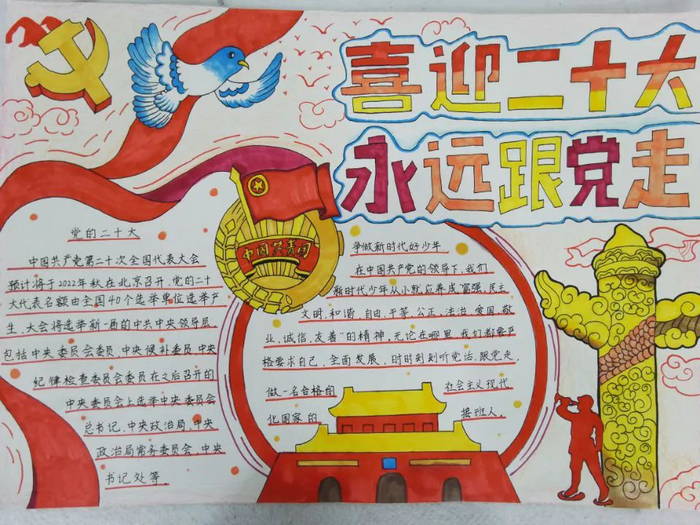 喜迎二十大
永远跟党走
中国共青团
党的二十大
中国共产党第二十次全国代表大会
预计将于2022年秋在北京召开,党的二十
大代表名额由全国40个选举单位选举产
生,大会将选举新一届的中共中央领导层,
包括中央委员会委员,中央候补委员,中央
纪律检查委员会委员在之后召开的
中央委员会上选举中央委员会
总书记,中央政治局,中央
政治局常务委员会,中央
书记处等。
争做新时代好少年
在中国共产党的领导下,我们
新时代少年从小就应养成"富强,民主
文明,和谐,自由,平等,公正,法治,爱国,敬
业,诚信,友善"的精神,无论在哪里,我们都要严
格要求自己,全面发展,时时刻刻听党话,跟党走,
做一名合格的社会主义现代
化国家的接班人。